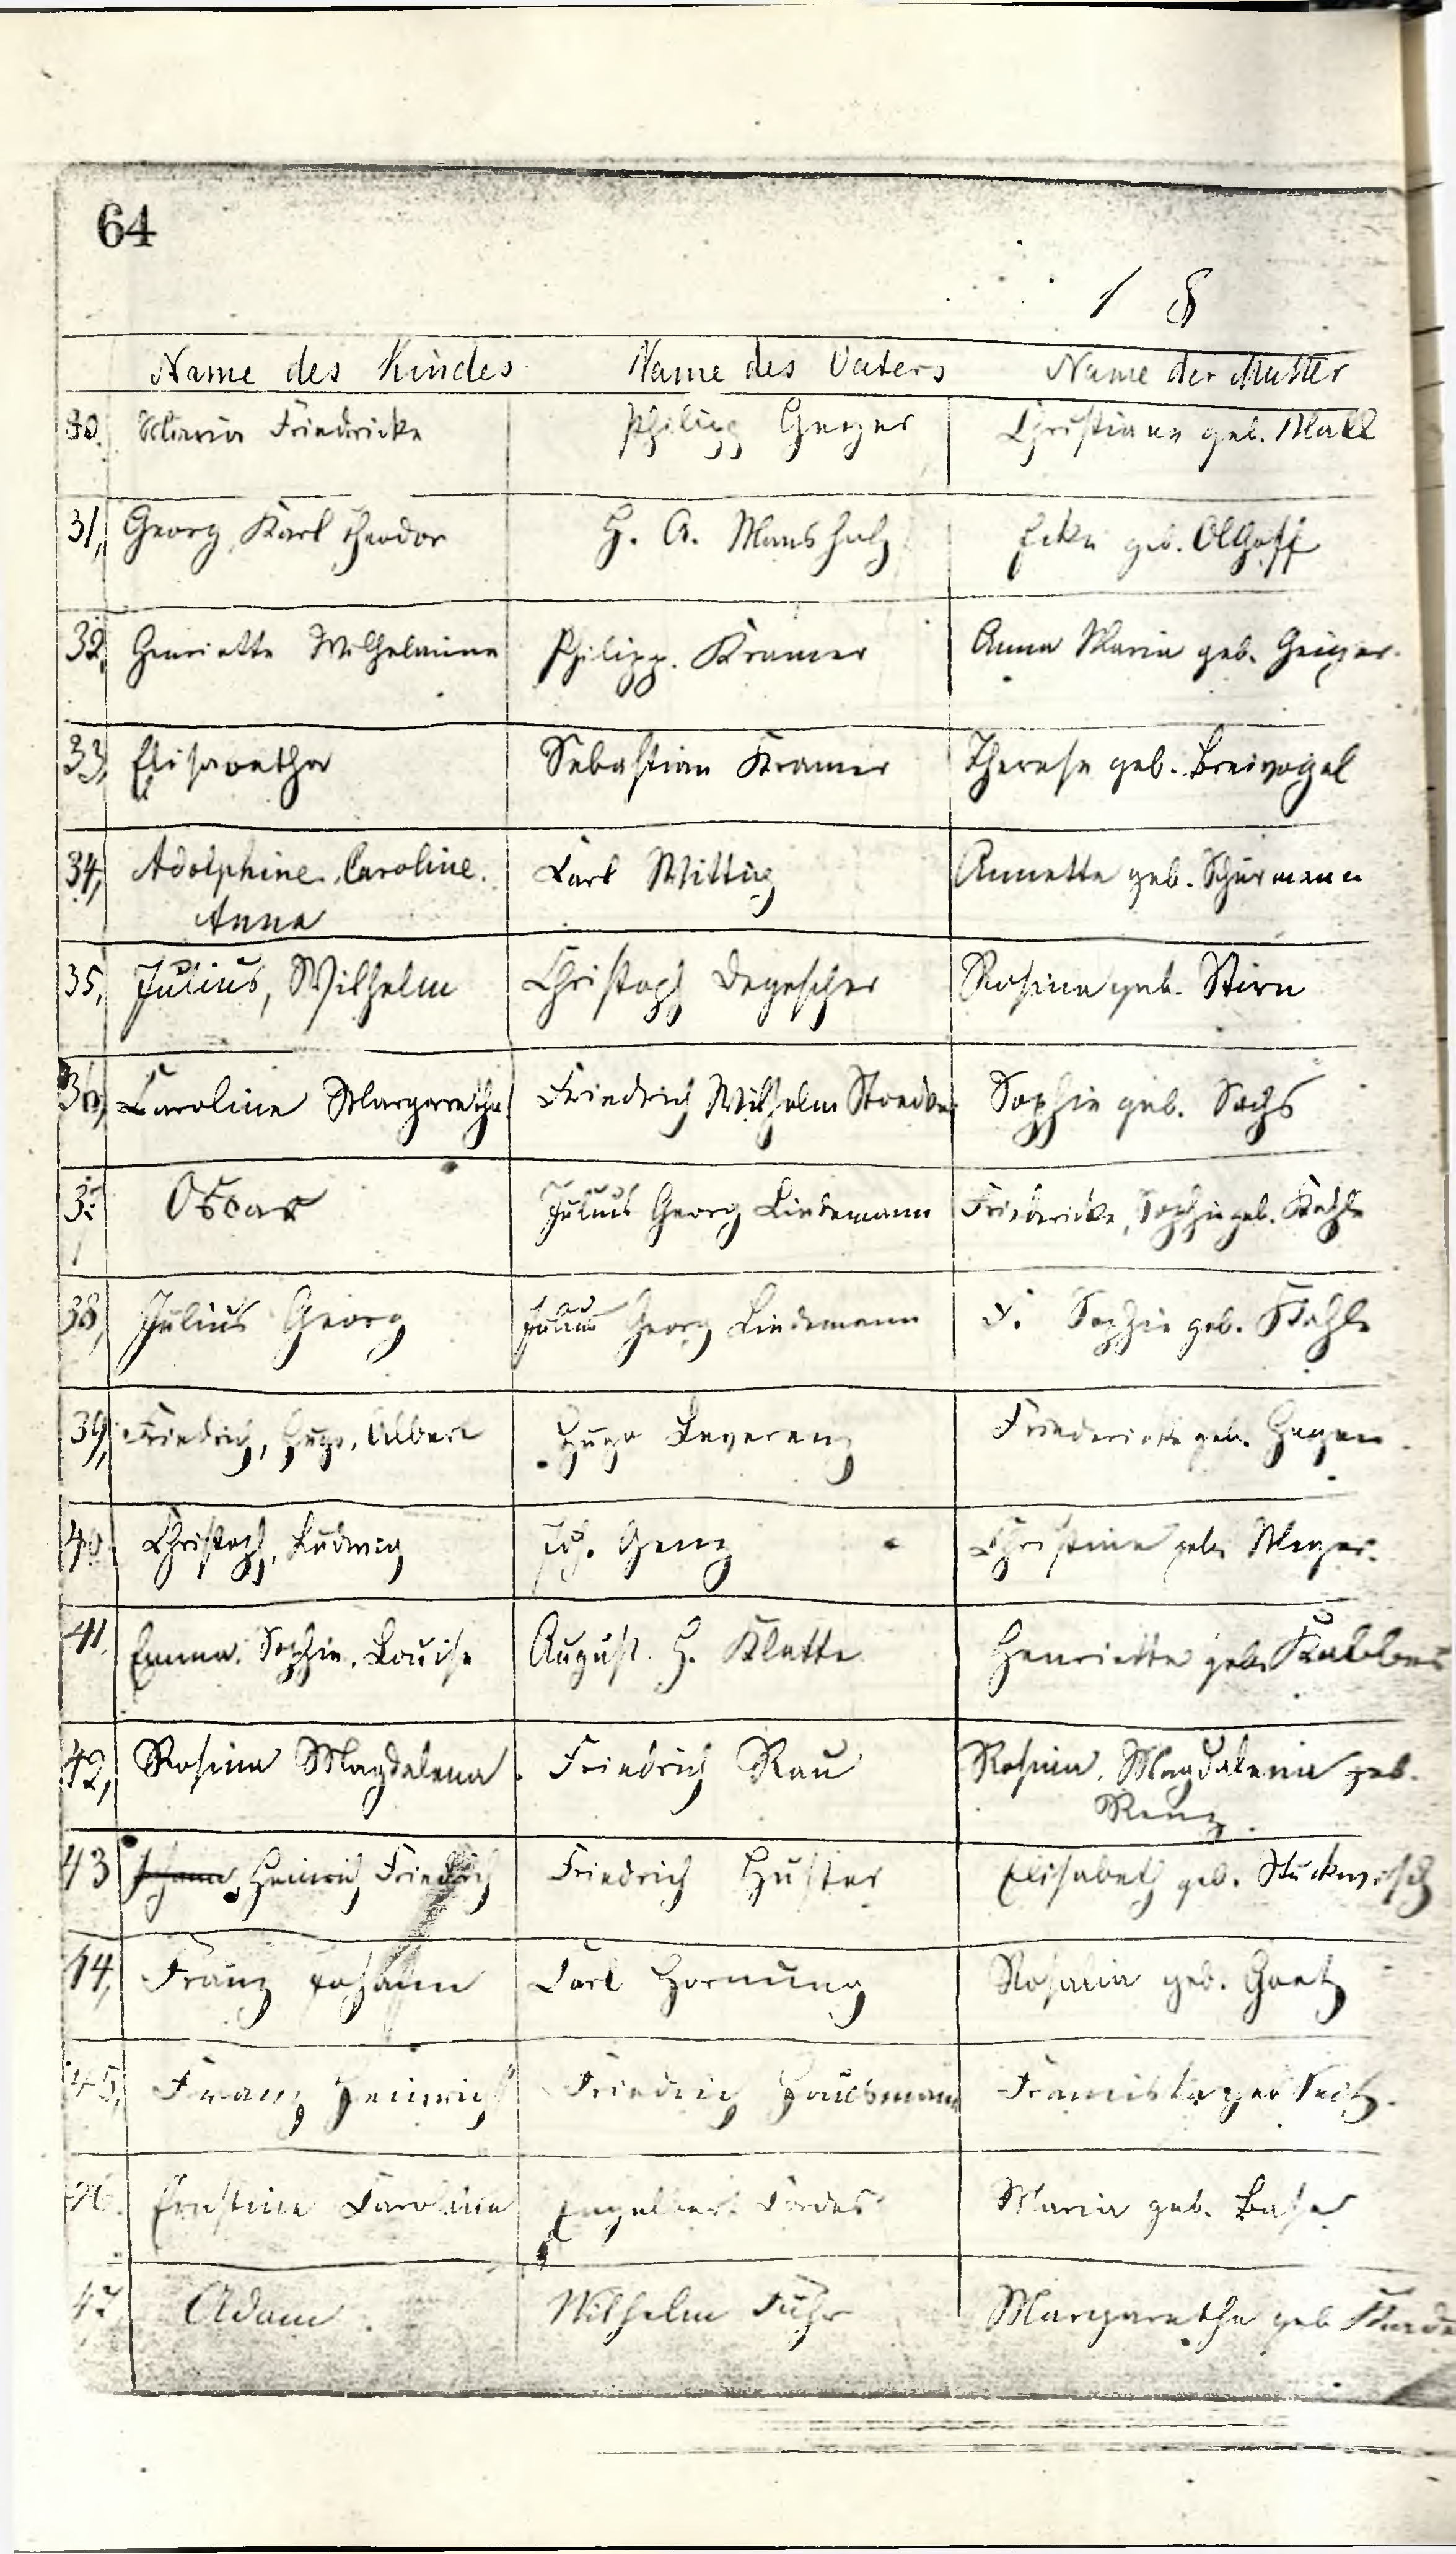 64
1 8
Name des Kindes Name des Vaters Name der Mutter
30. Maria Friedricke Philipp Geyer Christiane geb. Mall
31, Georg, Karl Theodor H. A. Mansholz geb. Olthoff
32, Henriette Wilhelmine Philipp. Kramer Anna Maria geb. Geiger.
33, Elisabetha Sebastian Kramer Therese geb. Breivogel
34, Adolphine, Caroline. Carl Wittig Annette geb. Schürmann
Anna
35, Julius, Wilhelm Christoph Degescher Rosina geb. Stirn
36, Caroline Margaretha Friedrich Wilhelm Sophie geb. Sachs
37 Oscar Julius Georg Lindemann Friedericke, Sophie geb. Kahle
38, Julius Georg Julius Georg Lindemann F. Sophie geb. Kahle
39, Friedrich, Hugo, Albert Hugo Leverenz Friedericke geb. Hagen.
40. Christoph, Ludwig Joh. Genz Christine geb. Meyer.
41. Emma, Sophie, Louise August. H. Klatte Henriette geb.
42, Rosina Magdalena. Friedrich Rau Rosina, Magdalena geb.
Renz.
43 Johann, Heinrich Friedrich Friedrich Huster Elisabeth geb. Stuckwisch
44, Franz Johann Carl Hornung Rosina geb. Goetz
45, Franz Heinrich Friedrich Hausmann geb. Seitz.
46. Caroline Engelbert Cordes Maria geb.
47, Adam. Wilhelm Führ Margaretha geb